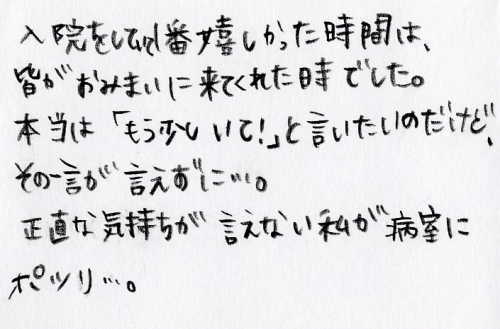 入院をしてて1番嬉しかった時間は、
皆がおみまいに来てくれた時でした。
本当は「もう少しいて!」と言いたいのだけど、
その一言が言えずに…。
正直な気持ちが言えない私が病室に
ポツリ…。